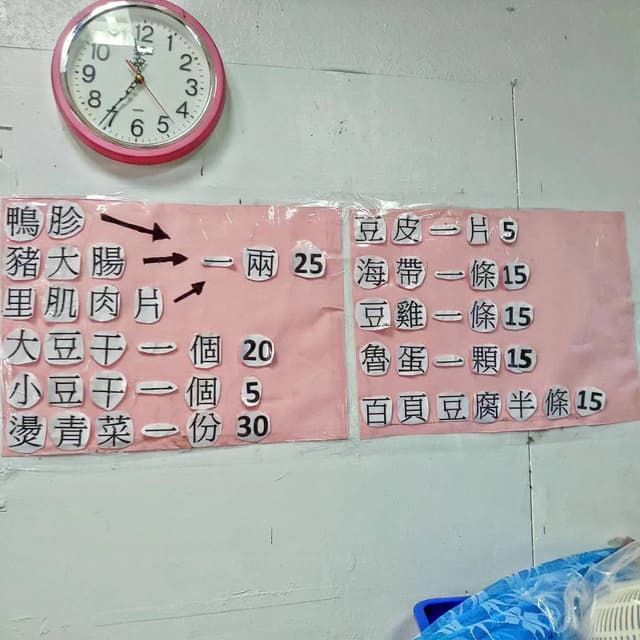 12
1
2
3
4
5
6
7
8
9
10
鴨胗
豬大腸 一兩 25
里肌肉片
大豆干一個 20
小豆干一個 5
燙青菜一份 30
豆皮一片 5
海帶一條 15
豆雞一條 15
魯蛋一顆 15
百頁豆腐半條 15